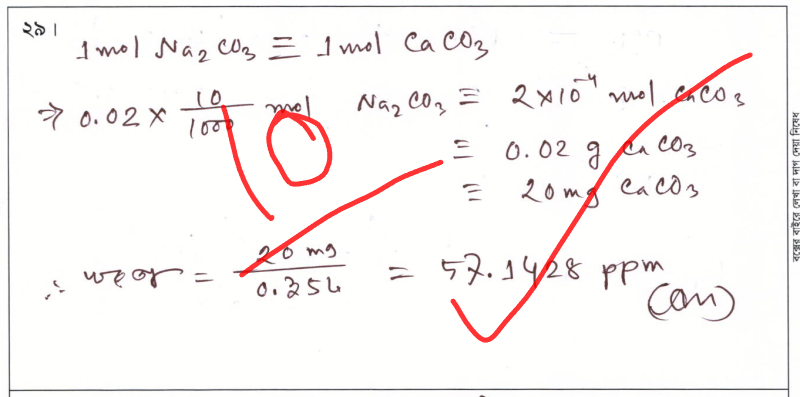 ২৯।
1 mol Na₂CO₃ ≡ 1 mol CaCO₃
⇒ 0.02 × 10/1000 mol Na₂CO₃ ≡ 2×10⁻⁴ mol CaCO₃
≡ 0.02 g CaCO₃
≡ 20 mg CaCO₃
∴ = 20 mg/0.35L = 57.1428 ppm
(Ans)
10
বক্সের বাইরে লেখা বা দাগ দেয়া নিষেধ